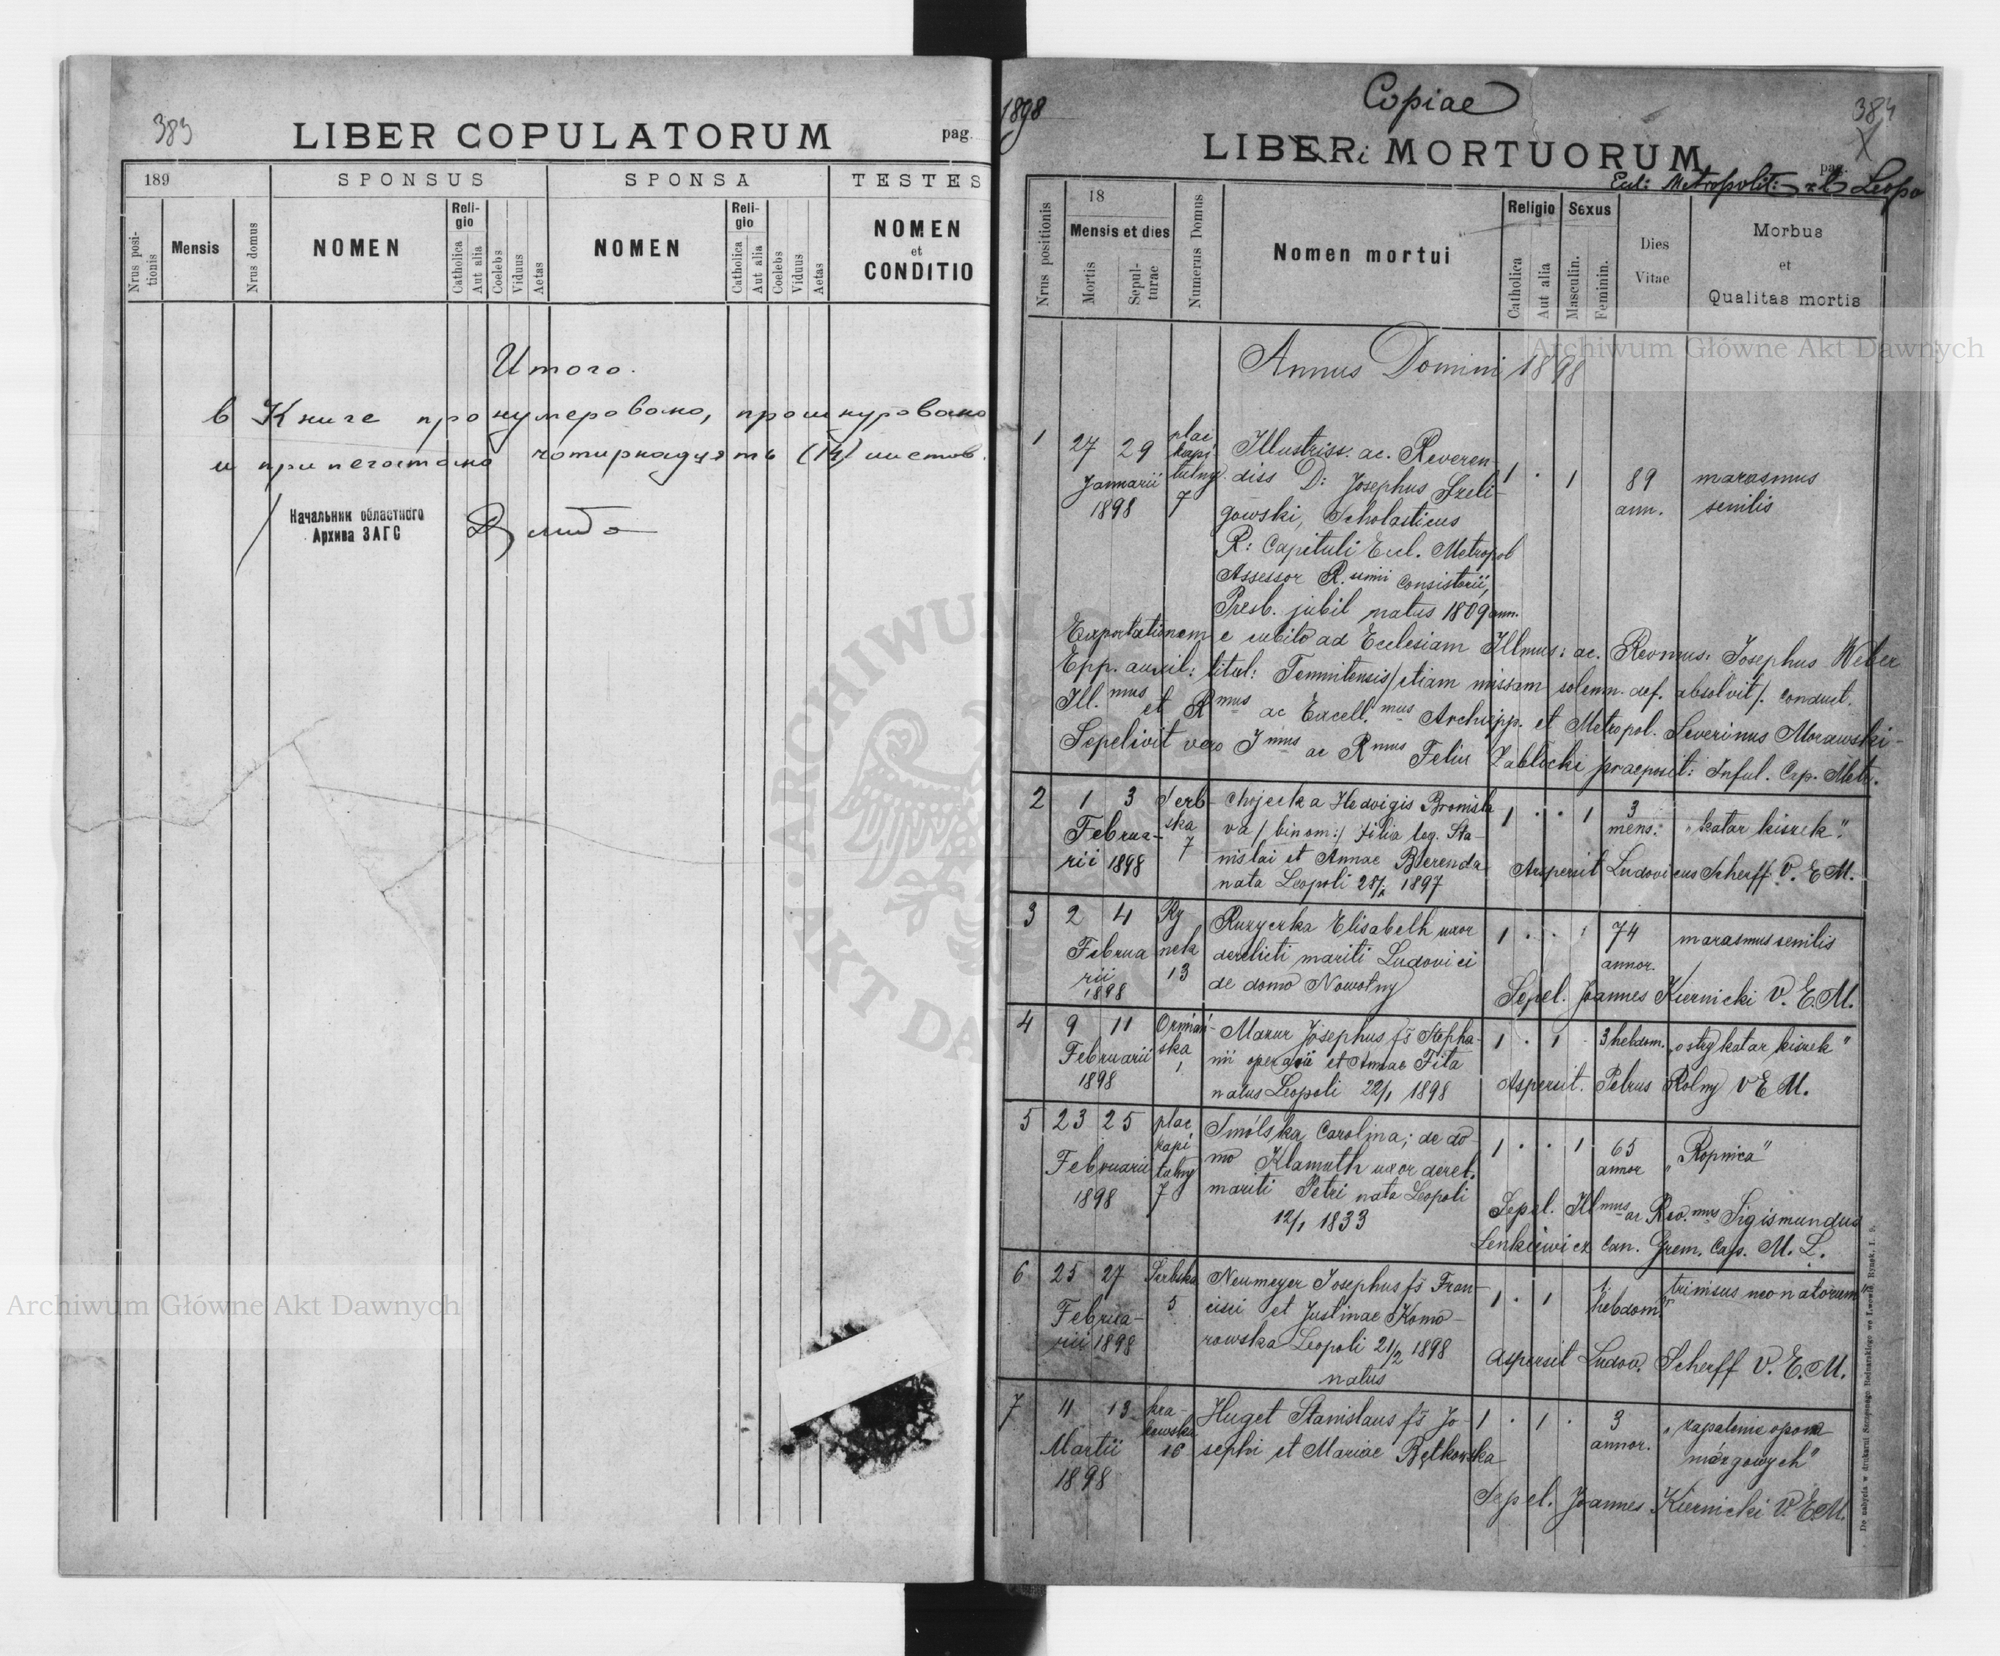 383
LIBER COPULATORUM
pag.
189
SPONSUS
SPONSA
TESTES
Nrus positionis
Mensis
Nrus domus
NOMEN
Religio
Catholica
Aut alia
Coelebs
Viduus
Aetas
NOMEN
Religio
Catholica
Aut alia
Coelebs
Viduus
Aetas
NOMEN
et
CONDITIO
Итого.
в Книге пронумеровано, прошнуровано
и припечатано чотирнадцять (14) листов.
Начальник областного
Архива ЗАГС
1898
Copiae
384
LIBERi MORTUORUM
pag.
Eccl: Metropolit: r. l. Leopo
Nrus positionis
18
Mensis et dies
Mortis
Sepulturae
Numerus Domus
Nomen mortui
Religio
Catholica
Aut alia
Sexus
Masculin.
Feminin.
Dies
Vitae
Morbus
et
Qualitas mortis
Annus Domini 1898
1 27 29 plac Illustriss. ac. Reveren-
Januarii kapi diss D: Josephus Szeli- 1 · 1 89 marasmus
1898 tulny 7 gowski, Scholasticus ann. senilis
R: Capituli Eccl. Metropol
Assessor R.ssimi Consistorii,
Presb. jubil natus 1809 ann.
Exportationem e cubito ad Ecclesiam Illmus: ac. Revmus: Josephus Weber
Epp. auxil: titul: Temnitensis/etiam missam solemn. def. absolvit/. conduct.
Ill.mus et Rmus ac Excell.mus Archiepp. et Metropol. Severinus Morawski-
Sepelivit vero Jmus ac Rmus Felix Zabłocki praeposit: Inful. Cap. Metr.
2 1 3 Serb- Chojecka Hedvigis Bronisla 1 · · 1 3 „katar kiszek".
Februa- ska va /binom:/ filia leg. Sta- mens.
rii 1898 7 nislai et Annae Berenda Aspersit Ludovicus Scherff V. E M.
nata Leopoli 28/ 1897
3 2 4 Ry Ruzycka Elisabeth uxor 1 · · 1 74 marasmus senilis
Februa nek derelicti mariti Ludovici annor.
rii 13 de domo Nowotny Sepel. Joannes Kiernicki V. E. M.
1898
4 9 11 Ormiań- Mazur Josephus fs Stepha- 1 · 1 · 3 hebdom. „ostry katar kiszek"
Februarii ska nii operarii et Annae Fita
1898 1 natus Leopoli 22/1 1898 Aspersit. Petrus Rolny V E M.
5 23 25 plac Smólska Carolina; de do- 1 · · 1 65 „Ropnica"
Februarii kapi mo Klamuth uxor derel. annor
1898 tulny 7 mariti Petri nata Leopoli Sepel. Illmus ac. Rev.mus Sigismundus
12/1 1833 Lenkiewicz Can. Grem. Cap. M. L.
6 25 27 Serbska Neumeyer Josephus fs Fran- 1 · 1 1 „trimsus neonatorum"
Februa- 5 cisci et Justinae Komo- hebdom.
rii 1898 rowska Leopoli 21/2 1898 Aspersit Ludov. Scherff V. E. M.
natus
7 11 13 kra- Huget Stanislaus fs Jo- 1 · 1 · 3 „zapalenie opon
Martii kowska sephi et Mariae Bętkowska annor. mózgowych"
1898 16 Sepel. Joannes Kiernicki V. E. M.
Do nabycia w drukarni Szczęsnego Bednarskiego we Lwowie, Rynek, l. 9.
Archiwum Główne Akt Dawnych
Archiwum Główne Akt Dawnych